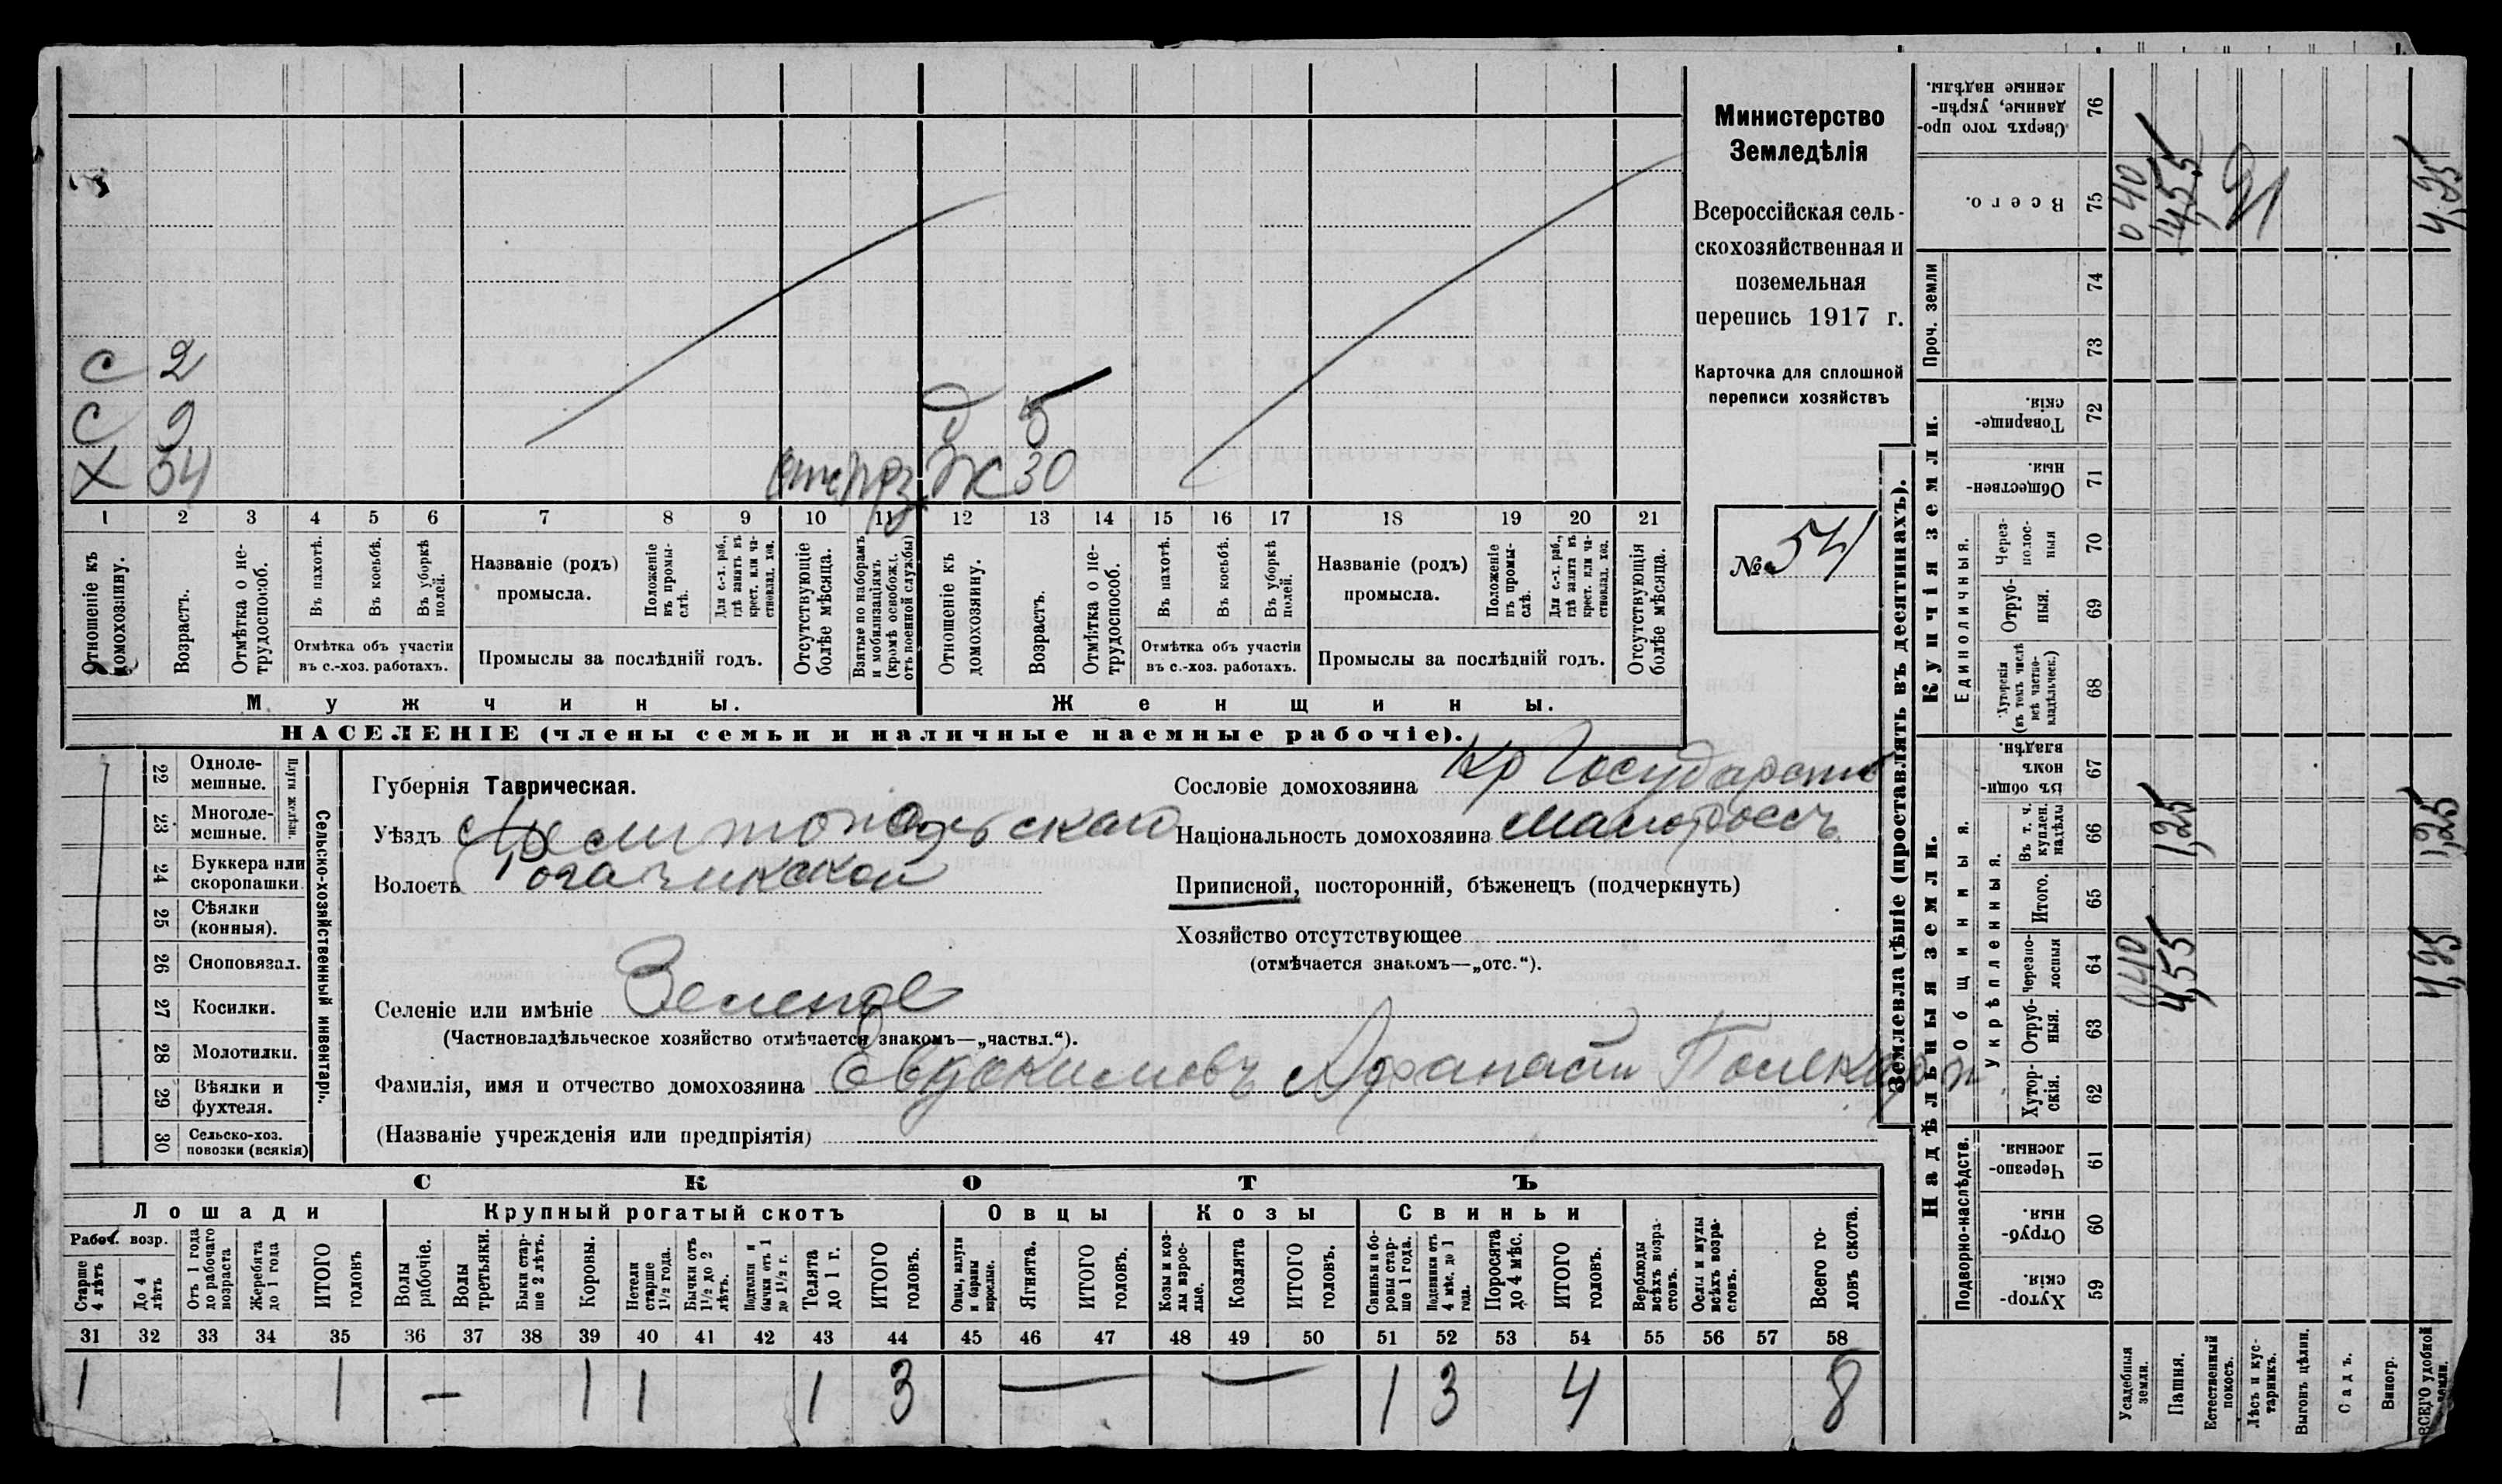 С 2
С 9 Д 5
Х 34 Ж 30
1 2 3 4 5 6 7 8 9 10 11 12 13 14 15 16 17 18 19 20 21
Отношеніе къ домохозяину.
Возрастъ.
Отмѣтка о не-трудоспособ.
Въ пахотѣ.
Въ косьбѣ.
Въ уборкѣ полей.
Отмѣтка объ участіи
въ с.-хоз. работахъ.
Названіе (родъ)
промысла.
Положеніе въ промы-слѣ.
Для с.-х. раб., гдѣ занятъ въ крест. или ча-стновлад. хоз.
Промыслы за послѣдній годъ.
Отсутствующіе болѣе мѣсяца.
Взятые по наборамъ и мобилизаціямъ (кромѣ освобожд. отъ военной службы)
Отношеніе къ домохозяину.
Возрастъ.
Отмѣтка о не-трудоспособ.
Въ пахотѣ.
Въ косьбѣ.
Въ уборкѣ полей.
Отмѣтка объ участіи
въ с.-хоз. работахъ.
Названіе (родъ)
промысла.
Положеніе въ промы-слѣ.
Для с.-х. раб., гдѣ занята въ крест. или ча-стновлад. хоз.
Промыслы за послѣдній годъ.
Отсутствующія болѣе мѣсяца.
Мужчины. Женщины.
НАСЕЛЕНІЕ (члены семьи и наличные наемные рабочіе).
Министерство
Земледѣлія
Всероссійская сель-
скохозяйственная и
поземельная
перепись 1917 г.
Карточка для сплошной
переписи хозяйствъ
№ 54
22 Одноле-мешные.
23 Многоле-мешные.
Плуги желѣзн.
24 Буккера или скоропашки.
25 Сѣялки (конныя).
26 Сноповязал.
27 Косилки.
28 Молотилки.
29 Вѣялки и фухтеля.
30 Сельско-хоз. повозки (всякія)
Сельско-хозяйственный инвентарь.
Губернія Таврическая.
Уѣздъ Мелитопольскаго
Волость Рогачикской
Селеніе или имѣніе Зеленое
(Частновладѣльческое хозяйство отмѣчается знакомъ—„частвл.“).
Фамилія, имя и отчество домохозяина Евдокимовъ Афанасій Поликарп
(Названіе учрежденія или предпріятія)
Сословіе домохозяина Кр Государств
Національность домохозяина Малороссъ
Приписной, посторонній, бѣженецъ (подчеркнуть)
Хозяйство отсутствующее
(отмѣчается знакомъ—„отс.“).
СКОТЪ
Лошади Крупный рогатый скотъ Овцы Козы Свиньи
Рабоч. возр.
Старше 4 лѣтъ
До 4 лѣтъ
Отъ 1 года до рабочаго возраста
Жеребята до 1 года
ИТОГО головъ
Волы рабочіе.
Волы третьяки.
Быки стар-ше 2 лѣтъ.
Коровы.
Нетели старше 1 1/2 года.
Бычки отъ 1 1/2 до 2 лѣтъ.
Подтелки и бычки отъ 1 до 1 1/2 г.
Телята до 1 г.
ИТОГО головъ.
Овцы, валухи и бараны взрослые.
Ягнята.
ИТОГО головъ.
Козы и коз-лы взрос-лые.
Козлята
ИТОГО головъ.
Свиньи и бо-ровы стар-ше 1 года.
Подсвинки отъ 4 мѣс. до 1 года.
Поросята до 4 мѣс.
ИТОГО головъ.
Верблюды всѣхъ возра-стовъ.
Ослы и мулы всѣхъ возра-стовъ.
Всего го-ловъ скота.
31 32 33 34 35 36 37 38 39 40 41 42 43 44 45 46 47 48 49 50 51 52 53 54 55 56 57 58
1 1 – 1 1 1 3 — — 1 3 4 8
Землевладѣніе (проставлять въ десятинахъ).
Надѣльныя земли. Купчія земли. Проч. земли
Подворно-наслѣдств.
Общинныя.
Укрѣпленныя.
Единоличныя.
Хутор-скія. 59
Отруб-ныя. 60
Черезпо-лосныя. 61
Хутор-скія. 62
Отруб-ныя. 63
черезпо-лосныя 64
Итого. 65
Въ т. ч. куплен. надѣлы 66
Въ общин-номъ владѣн. 67
Хуторскія (въ томъ числѣ всѣ частно-владѣльческ.) 68
Отруб-ныя. 69
Через-полос-ныя 70
Обществен-ныя. 71
Товарище-скія. 72
73
74
Всего. 75
Сверхъ того про-данные, укрѣп-ленные надѣлы. 76
Усадебныя земли. 040 0 40
Пашня. 4,55 1,25 4,55
Естественный покосъ.
Лѣсъ и кус-тарникъ.
Выгонъ цѣлин.
Садъ.
Виногр.
ВСЕГО удобной земли. 4,95 1,25